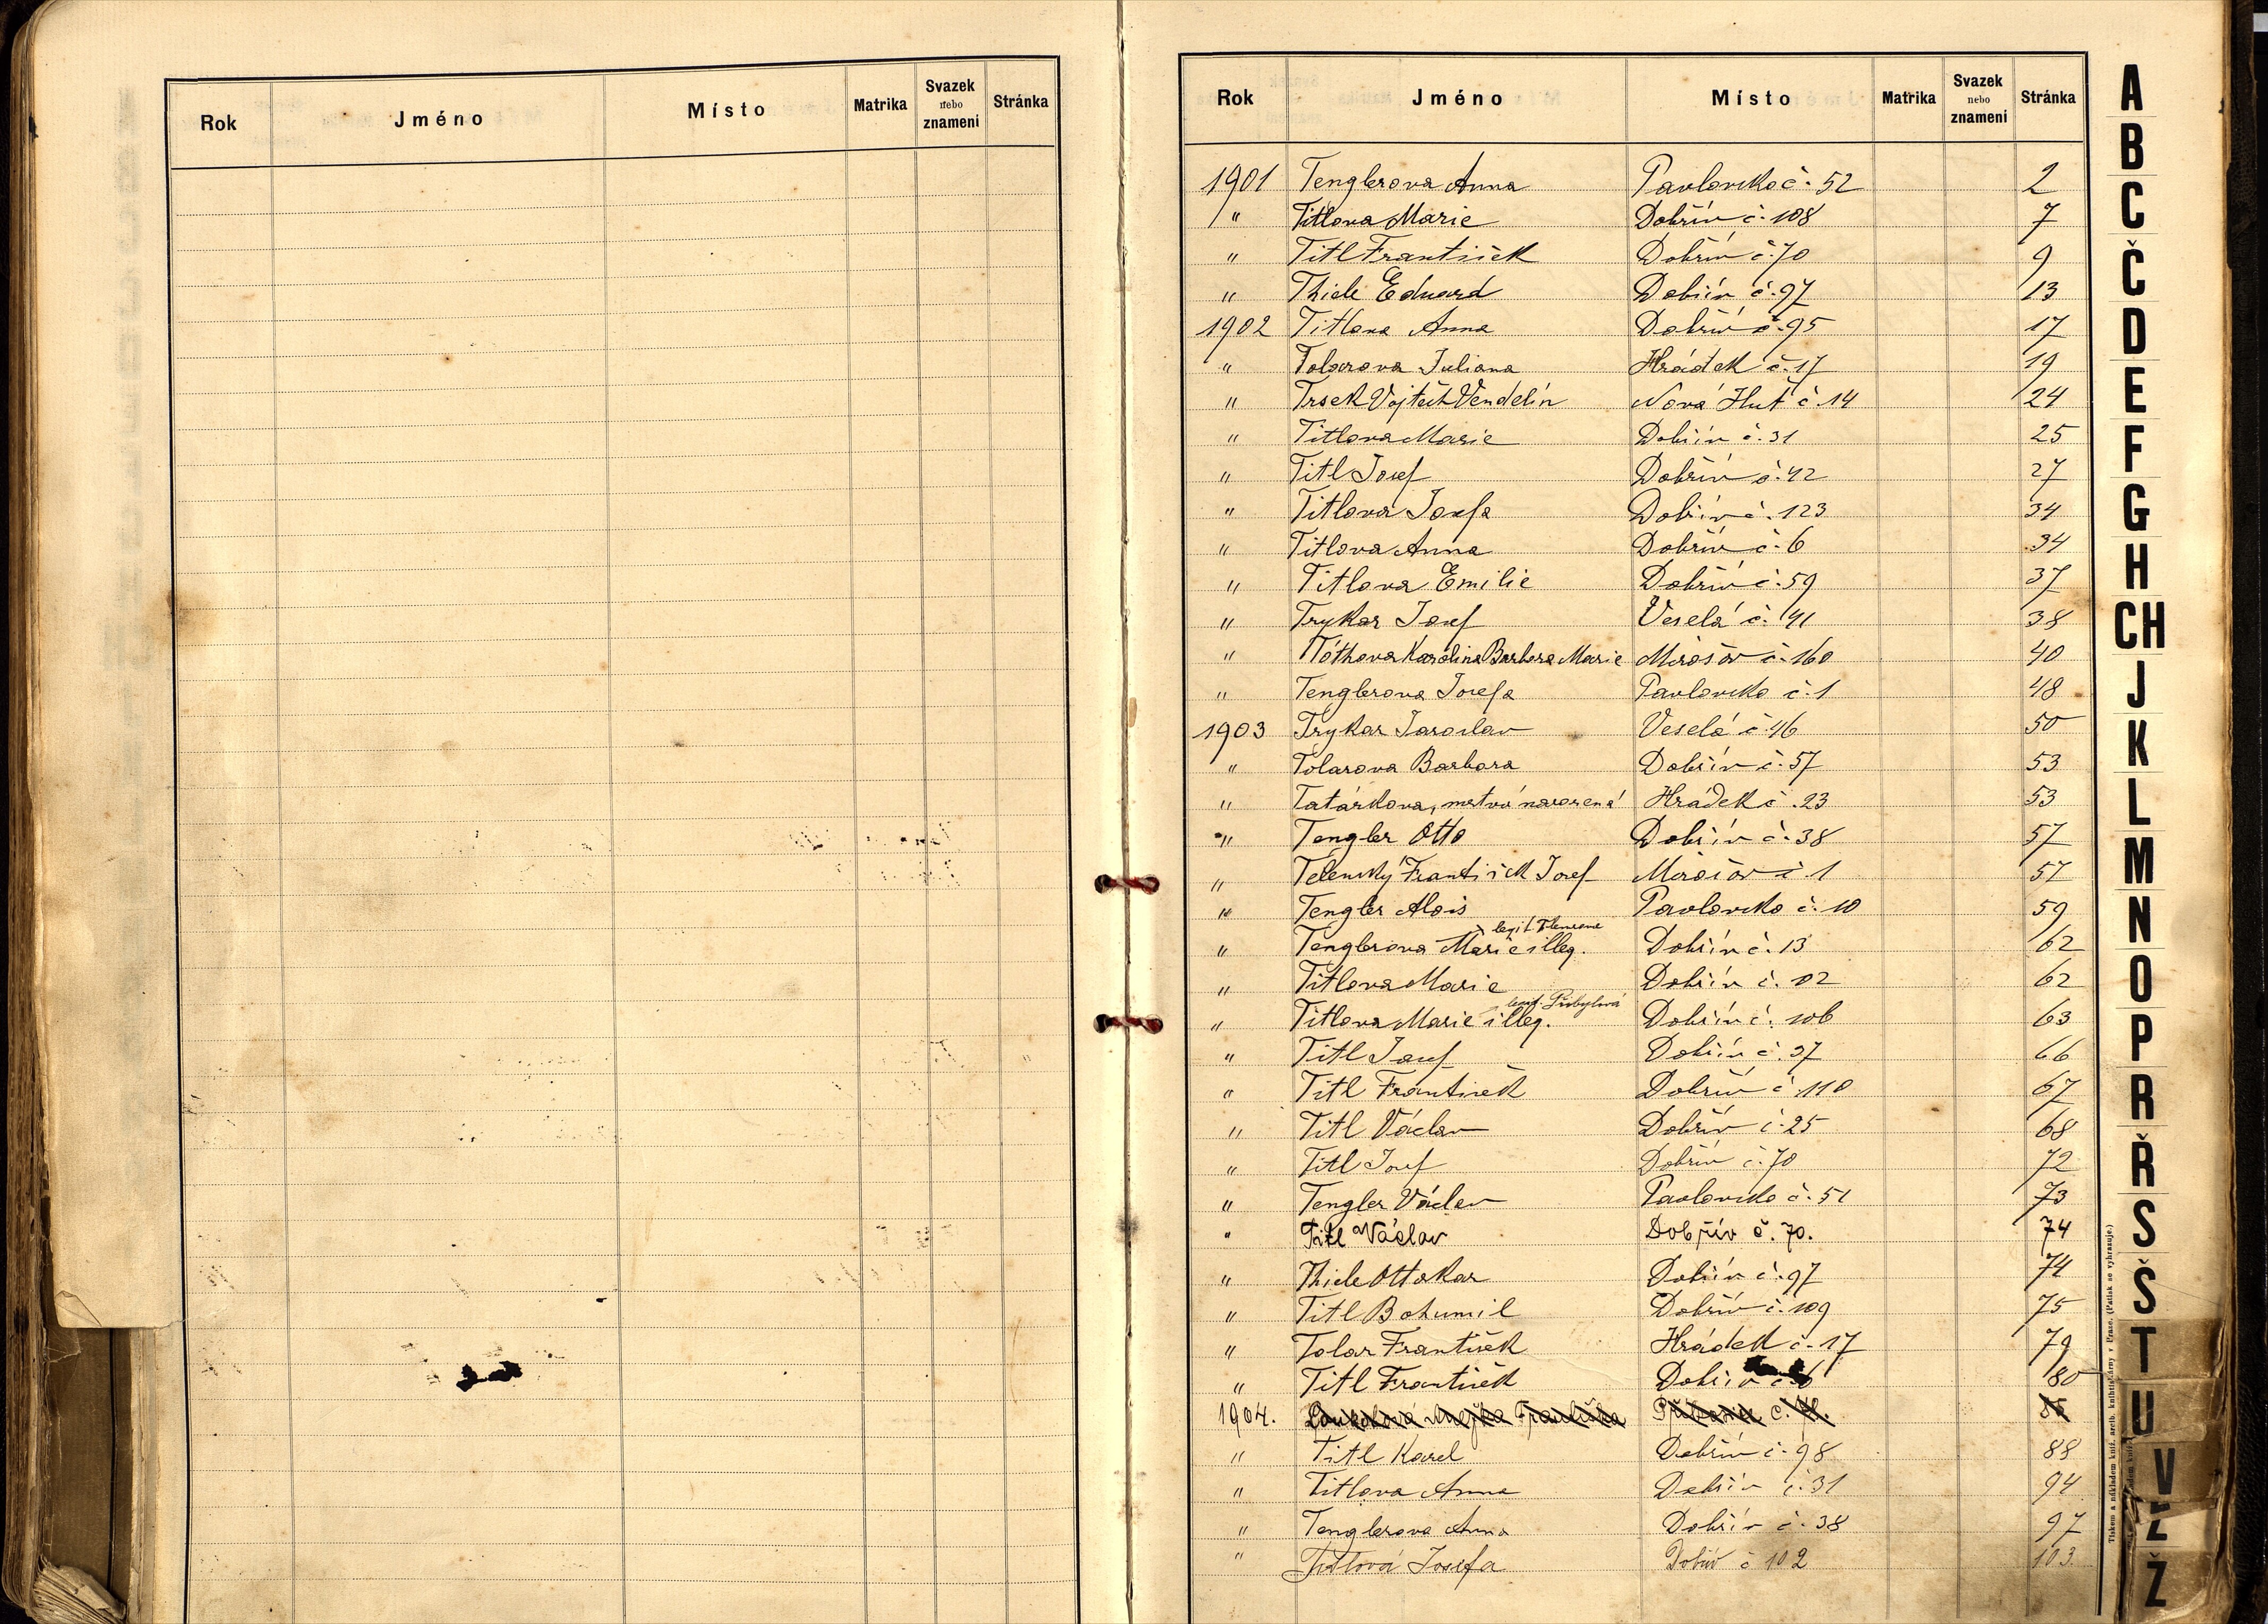 Rok Jméno Místo Matrika Svazek nebo znamení Stránka
Rok Jméno Místo Matrika Svazek nebo znamení Stránka
1901 Tenglerova Anna Pavlovsko č. 52 2
" Titlova Marie Dobřív č. 108 7
" Titl František Dobřív č. 70 9
" Thiele Eduard Dobřív č. 97 13
1902 Titlova Anna Dobřív č. 95 17
" Tolarova Juliana Hrádek č. 17 19
" Trsek Vojtěch Vendelín Nová Huť č. 14 24
" Titlova Marie Dobřív č. 31 25
" Titl Josef Dobřív č. 42 27
" Titlova Josefa Dobřív č. 123 34
" Titlova Anna Dobřív č. 6 34
" Titlova Emilie Dobřív č. 59 37
" Trykar Josef Veselá č. 41 38
" Tóthova Karolina Barbora Marie Mirošov č. 160 40
" Tenglerova Josefa Pavlovsko č. 1 48
1903 Trykar Jaroslav Veselá č. 46 50
" Tolarova Barbora Dobřív č. 57 53
" Tatárkova, mrtvá narozená Hrádek č. 23 53
" Tengler Otto Dobřív č. 38 57
" Telenský František Josef Mirošov č. 1 57
" Tengler Alois Pavlovsko č. 10 59
legit.
" Tenglerova Marie illeg. Dobřív č. 13 62
" Titlova Marie Dobřív č. 02 62
legit. Přibylová
" Titlova Marie illeg. Dobřív č. 106 63
" Titl Josef Dobřív č. 37 66
" Titl František Dobřív č. 110 67
" Titl Václav Dobřív č. 25 68
" Titl Josef Dobřív č. 70 72
" Tengler Václav Pavlovsko č. 51 73
" Titl Václav Dobřív č. 70. 74
" Thiele Ottokar Dobřív č. 97 74
" Titl Bohumil Dobřív č. 109 75
" Tolar František Hrádek č. 17 79
" Titl František Dobřív č. 80
1904. Františka č.
" Titl Karel Dobřív č. 98 88
" Titlova Anna Dobřív č. 31 94
" Tenglerova Anna Dobřív č. 38 97
" Titlová Josefa Dobřív č 102 103
A
B
C
Č
D
E
F
G
H
CH
J
K
L
M
N
O
P
R
Ř
S
Š
T
U
V
Z
Ž